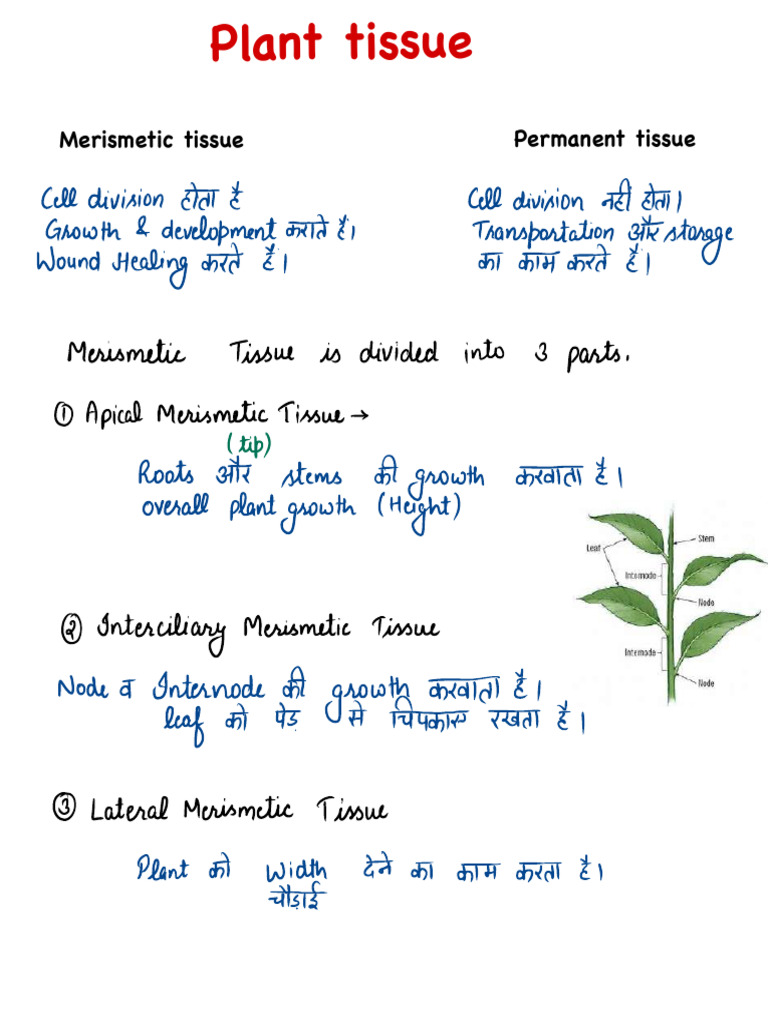 Plant tissue
Merismetic tissue
Permanent tissue
Cell division होता है
Growth & development कराते है।
Wound Healing करते है।
Cell division नही होता।
Transportation और storage
का काम करते है।
Merismetic Tissue is divided into 3 parts.
① Apical Merismetic Tissue →
(tip)
Roots और stems की growth करवाता है।
overall plant growth (Height)
Leaf
Stem
Internode
Node
Internode
Node
② Interciliary Merismetic Tissue
Node व Internode की growth करवाता है।
leaf को पेड़ से चिपकाए रखता है।
③ Lateral Merismetic Tissue
Plant को width देने का काम करता है।
चौड़ाई